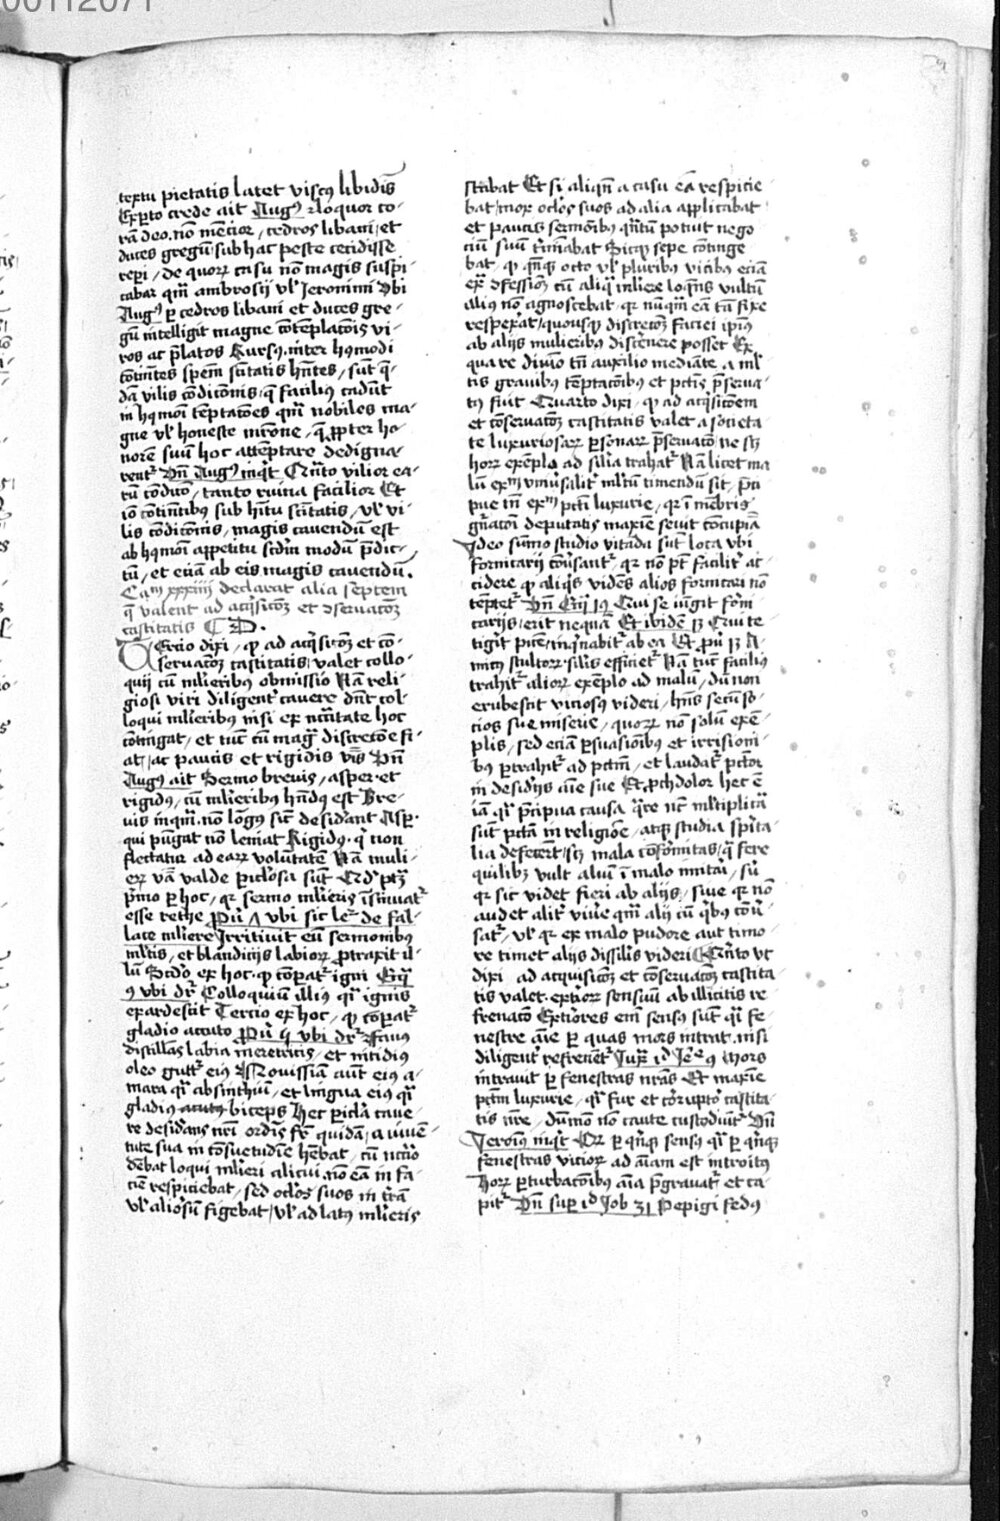 00112071
textu pietatis latet viscꝯ libidīs
Exꝑto crede ait Augꝯ ⁊ loquor co-
rā deo. nō mēcior, cedros libani et
duces gregū sub hac peste cecidisse
reꝑi, de quoꝝ casu nō magis suspi-
cabar qm̄ ambrosij vl̓ Jeronimi Vbi
Augꝯ ꝑ cedros libani et duces gre-
gū intelligit magne cōtēplacōis vi-
ros ac p̄latos Rursꝯ. inter hꝯmodi
cōtinētes spem sc̄titatis hn̄tes, sūt q̄-
dā vilis cōdicōnis, q̄ facilius cadūt
in hꝯmōi tēptacōes qm̄ nobiles ma-
gne vl̓ honeste mr̄one, q̄ ꝓpter ho-
norē suū hoc attēptare dedigna-
rent᷑ Vn̄ Augꝯ inqͥt Qn̄to vilior ea-
rū cōdicō, tanto ruina facilior Et
iō cōtinētibus sub hītu sc̄titatis, vl̓ vi-
lis cōdicōnis, magis cavendū est
ab hꝯmōi appetitu scd̓m modū p̄dic-
tū, et eciā ab eis magis cavendū.
Cam xxxiiii declarat alia septem
q̄ valent ad acqͥsicōꝫ et ɔservacōꝫ
castitatis C D.
Tercio dixi, ꝙ ad acqͥsicōꝫ et cō-
servacōꝫ castitatis, valet collo-
quij cū ml̓ieribus obmissio Nā reli-
giosi viri diligent᷑ cavere dn̄t col-
loqui ml̓ieribus nisi ex nc̄citate hoc
cōtingat, et tūc cū magͣ discrecōe fi-
at, ac paucis et rigidis v̄bis Vn̄
Augꝯ ait Sermo brevis, asper et
rigidus, cū ml̓ieribus hn̄dꝯ est Bre-
vis inqm̄. nō longꝰ sic̄ desidant Asꝑ.
qui pungat nō leniat Rigidꝰ. qͥ non
flectatur ad eaꝝ volūtatē Nā muli-
eꝝ v̄ba valde ꝑiclosa sūt
p̄mo ꝑ hoc, qꝛ sermo ml̓ieris īsinuat᷑
esse rethe ꝓū 7 vbi sic le᷑ de fal-
lace ml̓iere Irritivit eū sermonibus
ml̓tis, et blandicijs labioꝝ ꝓtraxit il-
lū Scd̓o ex hoc. ꝙ cōꝑat᷑ igni Eccͥ
9 vbi dr̄ Colloquiū illiꝰ qͣi ignis
exardescit Tercio ex hoc, ꝙ cōꝑat᷑
gladio acuto ꝓū 5 vbi dr̄ ffavus
distillās labia meretricis, et nitidiꝰ
oleo gutt᷑ eiꝰ Novissīa aūt eiꝰ a-
mara qͣi absinthiū, et lingua eiꝰ qͣi
gladiꝰ acutꝰ biceps Hec ꝑicla cave-
re desiderās nr̄i ordīs fr̄ quidā, a iuvē-
tute sua in cōsuetudīe hēbat, cū nc̄cio
dēbat loqui ml̓ieri alicui. nō eā in fa-
ciē respiciebat, sed oclōs suos in tr̄ā
vl̓ aliōsū figebat, vl̓ ad latꝰ ml̓ieris
stabat Et si aliqn̄ a casu eā respicie-
bat, mox oclōs suos ad alia applicabat
et paucis sermōibꝰ qn̄tū potuit nego-
ciū suū t̓minābat Sicqꝫ sepe cōtinge-
bat, ꝙ qn̄qꝫ octo vl̓ pluribꝰ vicibꝰ eciā
ex ɔfessiōe cū aliqͣ ml̓iere loqn̄s vultū
illius nō agnoscebat, qꝛ nūqͣm eā tā fixe
respexat, quousqꝫ discrecōꝫ faciei ip̄ius
ab alijs mulieribus discernere posset Ex
qua re divino tn̄ auxilio mediante, a ml̓-
tis gravibꝰ tēptacōibus et pctīs p̄serva-
tꝰ fuit Quarto dixi, ꝙ ad acqͥsicōem
et cōservacōꝫ castitatis valet a societa-
te luxuriosaꝝ ꝑsonaꝝ p̄servacō, ne sꝫ
hoꝝ exēplo ad silīa trahat᷑ Nā licet ma-
lū exm̄ vniūsalit᷑ ml̓tū timendū sit, p̄ci-
pue tn̄ exm̄ pctī luxurie, qꝛ ī mēbris
gn̄acōi deputatis maxīe sevit cōcupīa
Ideo sūmo studio vitāda sūt loca vbi
fornicarij cōv̓sant᷑, qꝛ nō pt̄ facilit᷑ ac-
cidere ꝙ aliqͥs vidēs alios fornicari nō
tēptet᷑ Vn̄ Eccͥ 19 Qui se iūgit forni-
carijs, erit nequā Et ibidē 13 Qui te-
tigit᷑ picē, inqͥnabit᷑ ab ea Et ꝓū 13 A-
micꝰ stultoꝝ silis efficiet᷑ Nā tūc faciliꝰ
trahit᷑ alioꝝ exēplo ad malū, dū non
erubescit viciosꝰ videri, hn̄s secū so-
cios sue miserie, quoꝝ nō solū exē-
plis, sed eciā ꝑsuasiōibꝰ et irrisioni-
bꝰ ꝑtrahit᷑ ad pctm̄, et laudat᷑ pctōr
in desidijs aīe sue Et ꝓch dolor hec ē
iā qͣi p̄cipua causa qͣre nūc ml̓tiplicīa
sūt pctā in religiōe, atqꝫ studia spīta-
lia defecerūt, sꝫ mala cōfōrmitas, qͣ fere
quilibꝫ vult aliū ī malo imitāi, sū
qꝛ sic videt fieri ab alijs, sive qꝛ nō
audet alit᷑ viv̓e qm̄ alij cū qͥbꝰ cōv̓-
sat᷑, vl̓ qꝛ ex malo pudore aut timo-
re timet alijs dissilīs videri Qn̄to vt
dixi ad acquisicōꝫ et cōservacōꝫ castita-
tis valet. extioꝝ sensuū ab illicitis re-
frenacō Extiōres em̄ sensꝰ sūt qͣi fe-
nestre aīe ꝑ quas mors intrat. nisi
diligent᷑ refrenēt᷑ Iuxᵃ id Je᷑ 9 Mors
intravit ꝑ fenestras nr̄as Et maxīe
pctm̄ luxurie, qͣi fur et corruptōr castita-
tis nr̄e, dūmō nō caute custodiūt᷑ Vn̄
Jeronīꝰ inqͥt Qꝛ ꝑ qn̄qꝫ sensꝰ qͣi ꝑ qn̄qꝫ
fenestras vicioꝝ ad aīam est introitꝰ
Hoꝝ ꝑturbacōibꝰ aīa p̄gravat᷑ et ca-
pit᷑ Vn̄ suꝑ id Job 31 Pepigi fedꝰ